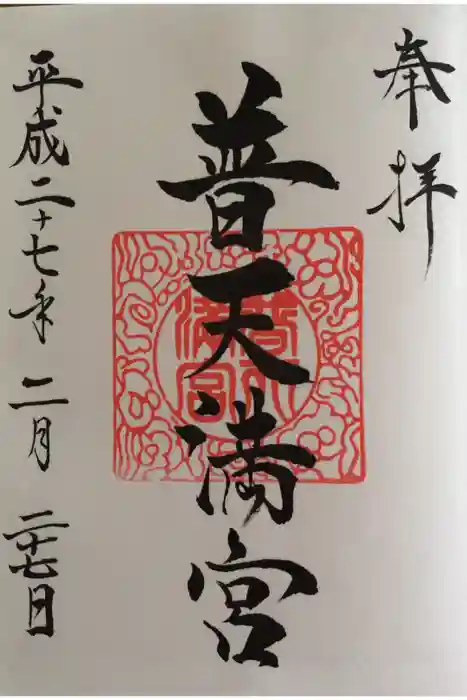 奉拝
普天満宮
平成二十七年二月二十七日
普天満宮